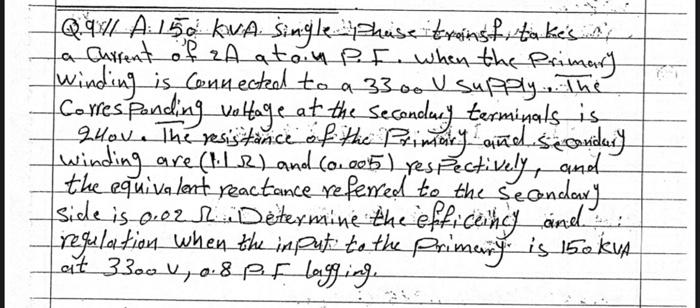 Q.9// A.150 KVA single phase transf. takes
a current of 2A at 0.4 P.F. when the Primary
winding is Connected to a 3300 V supply. The
Corresponding voltage at the secondary terminals is
240V. The resistance of the Primary and secondary
winding are (1.1 Ω) and (0.005) respectively, and
the equivalent reactance referred to the secondary
side is 0.02 Ω. Determine the efficeincy and
regulation when the input to the primary is 150 KVA
at 3300 V, 0.8 P.F lagging.